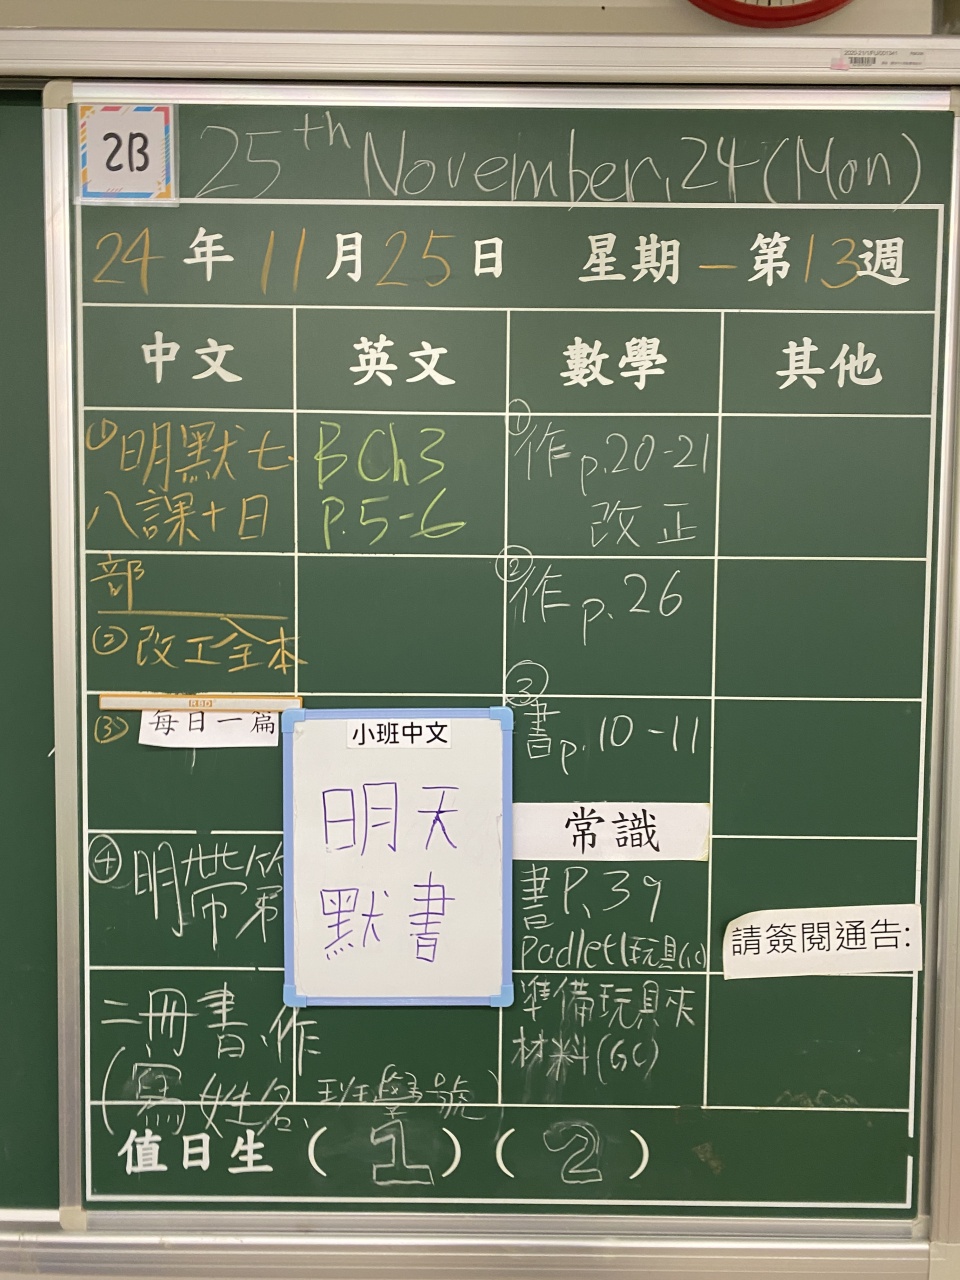 2B
25th November, 24 (Mon)
24年11月25日 星期一 第13週
中文 英文 數學 其他
① 明默七、
八課+日
部
② 改工全本
③ 每日一篇
④ 明帶第
二冊書、作
(寫姓名、班、學號)
B Ch3
P.5-6
小班中文
明天
默書
① 作 p.20-21
改正
② 作 p.26
③
書 p.10-11
常識
書 P.39
Padlet(玩具(GC)
準備玩具夾
材料(GC)
請簽閱通告:
值日生 ( 1 ) ( 2 )